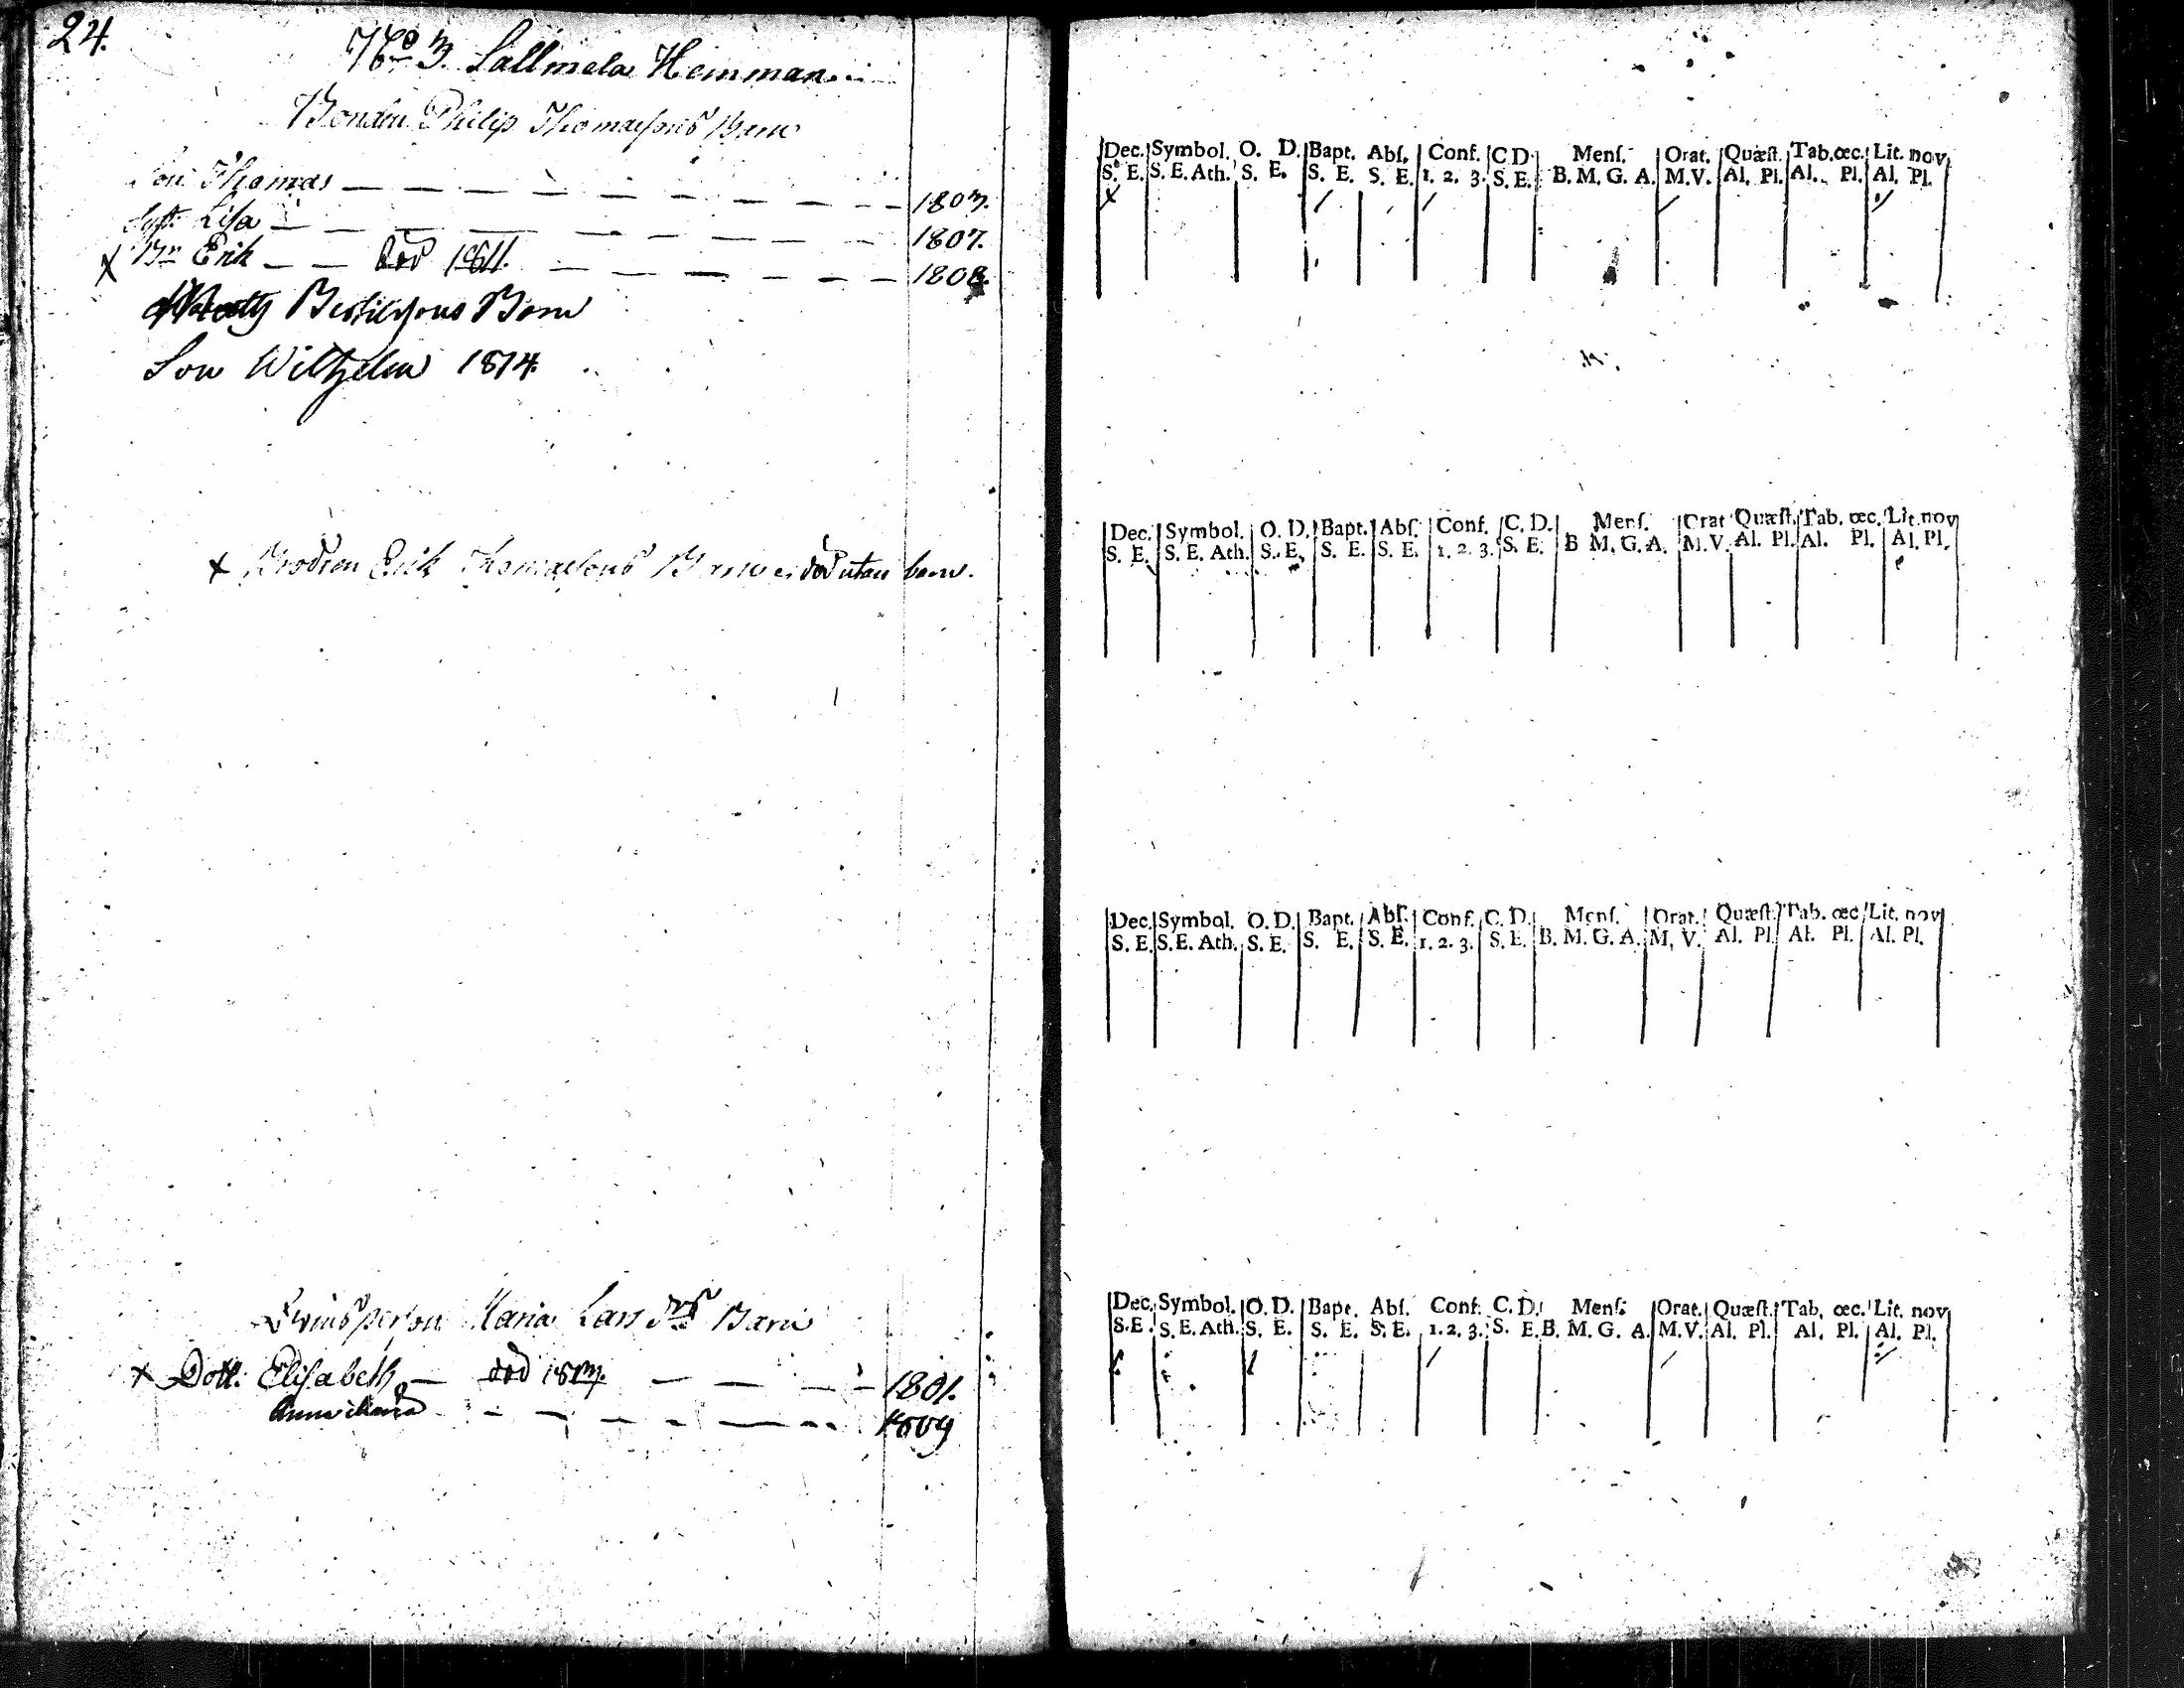 24.
No 3. Sallmela Hemman
Bonden Philip Thomassons Barn
Son Thomas 1803.
Syst. Lisa 1807.
x Br Erik död 1811. 1808.
Barn
Son Wilhelm 1814.
x Brodren Erik Thomassons Barn död utan barn.
Maria Lars Barn
x Dott. Elisabeth död 1813. 1801.
Anna 1809
Dec. Symbol. O. D. Bapt. Abſ. Conf. C. D. Menſ. Orat. Quæſt. Tab. œc. Lit. nov
S. E. S. E. Ath. S. E. S. E. S. E. 1. 2. 3. S. E. B. M. G. A. M. V. Al. Pl. Al. Pl. Al. Pl.
Dec. Symbol. O. D. Bapt. Abſ. Conf. C. D. Menſ. Orat Quæſt. Tab. œc. Lit. nov
S. E. S. E. Ath. S. E. S. E. S. E. 1. 2. 3. S. E. B M. G. A. M. V. Al. Pl. Al. Pl. Al. Pl.
Dec. Symbol. O. D. Bapt. Abſ. Conf. C. D. Menſ. Orat. Quæſt. Tab. œc Lit. nov
S. E. S. E. Ath. S. E. S. E. S. E. 1. 2. 3. S. E. B. M. G. A. M, V. Al. Pl. Al. Pl. Al. Pl.
Dec. Symbol. O. D. Bapt. Abſ. Conf. C. D. Menſ. Orat. Quæſt. Tab. œc. Lit. nov
S. E. S. E. Ath. S. E. S. E. S. E. 1. 2. 3. S. E. B. M. G. A. M. V. Al. Pl. Al. Pl. Al. Pl.